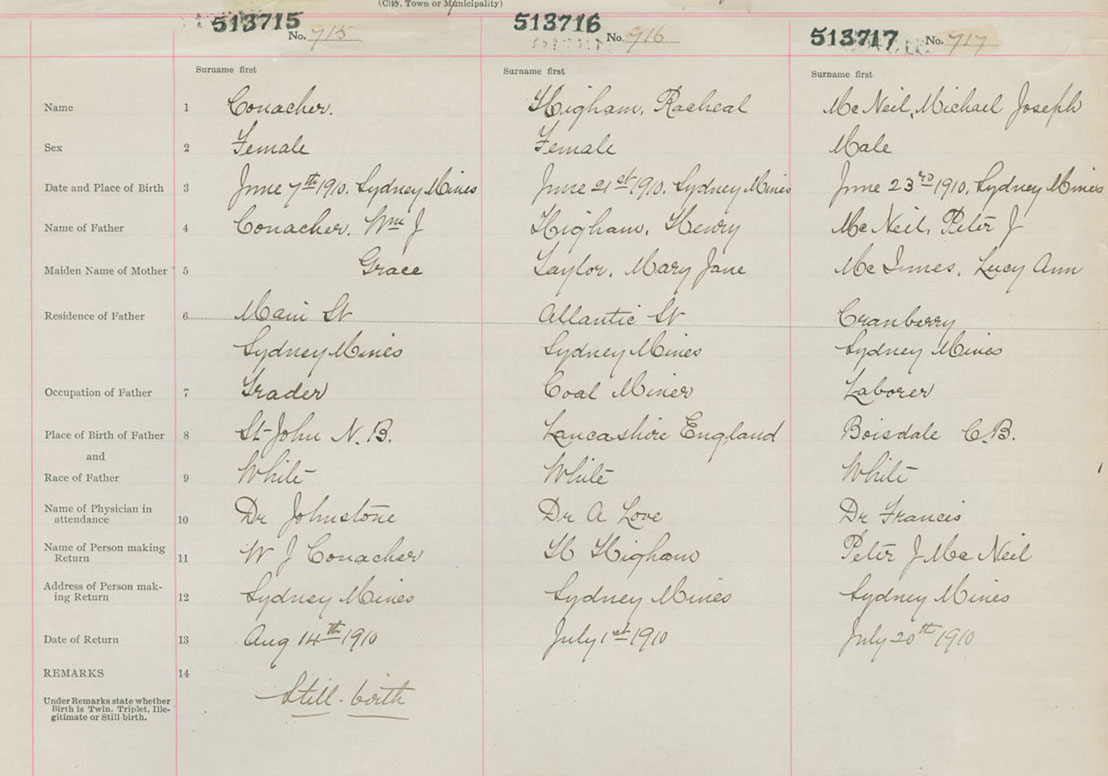 (City, Town or Municipality)
513715 No. 715 513716 No. 916 513717 No. 717
Surname first Surname first Surname first
Name 1 Conacher. Higham, Racheal McNeil, Michael Joseph
Sex 2 Female Female Male
Date and Place of Birth 3 June 7th 1910. Sydney Mines June 21st 1910. Sydney Mines June 23rd 1910. Sydney Mines
Name of Father 4 Conacher. Wm J Higham, Henry McNeil, Peter J
Maiden Name of Mother 5 Grace Taylor, Mary Jane McInnes, Lucy Ann
Residence of Father 6 Main St Atlantic St Cranberry
Sydney Mines Sydney Mines Sydney Mines
Occupation of Father 7 Coal Miner Laborer
Place of Birth of Father 8 St John N.B. Lancashire England Boisdale C.B.
and
Race of Father 9 White White White
Name of Physician in
attendance 10 Dr Johnstone Dr A Love Dr Francis
Name of Person making
Return 11 W J Conacher H Higham Peter J McNeil
Address of Person mak-
ing Return 12 Sydney Mines Sydney Mines Sydney Mines
Date of Return 13 Aug 14th 1910 July 1st 1910 July 20th 1910
REMARKS 14
Still-birth
Under Remarks state whether
Birth is Twin, Triplet, Ille-
gitimate or Still birth.